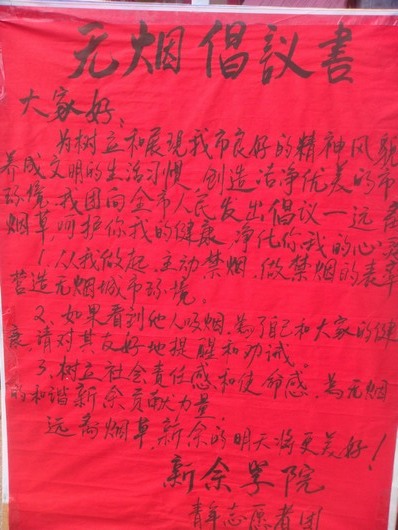 无烟倡议书
大家好：
为树立和展现我市良好的精神风貌
养成文明的生活习惯，创造洁净优美的市
环境，我团向全市人民发出倡议—远离
烟草，呵护你我的健康，净化你我的心
1、从我做起，主动禁烟，做禁烟的表率
营造无烟城市环境。
2、如果看到他人吸烟，为了自己和大家的健
康，请对其友好地提醒和劝诫。
3、树立社会责任感和使命感，为无烟
的和谐新余贡献力量。
远离烟草，新余的明天将更美好！
新余学院
青年志愿者团